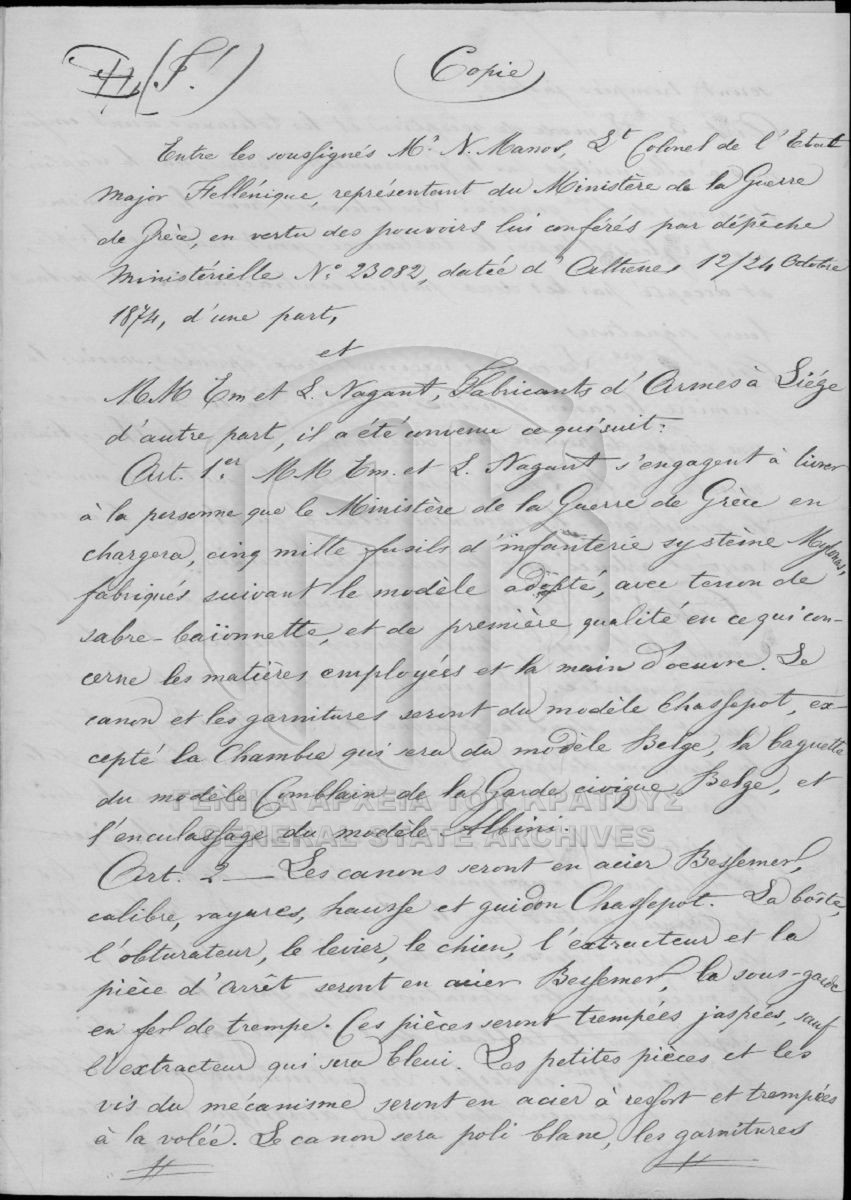 (F!) Copie
Entre les soussignés Mr. N. Manos, Lt Colonel de l'Etat
Major Hellénique, représentant du Ministère de la Guerre
de Grèce, en vertu des pouvoirs lui conférés par dépêche
Ministérielle No. 23082, datée d'Athènes 12/24 Octobre
1874, d'une part,
et
MM Em et L. Nagant, Fabricants d'Armes à Liége
d'autre part, il a été convenu ce qui suit:
Art. 1.er MM Em. et L. Nagant s'engagent à livrer
à la personne que le Ministère de la Guerre de Grèce en
chargera, cinq mille fusils d'infanterie système Mylonas,
fabriqués suivant le modèle adopté, avec tenon de
sabre-baïonnette, et de première qualité en ce qui con-
cerne les matières employées et la main d'oeuvre. Le
canon et les garnitures seront du modèle Chassepot, ex-
cepté la Chambre qui sera du modèle Belge, la baguette
du modèle Comblain de la Garde civique Belge, et
ΓΕΝΙΚΑ ΑΡΧΕΙΑ ΤΟΥ ΚΡΑΤΟΥΣ
l'enculassage du modèle Albini.
GENERAL STATE ARCHIVES
Art. 2 — Les canons seront en acier Bessemer,
calibre, rayures, hausse et guidon Chassepot. La boîte,
l'obturateur, le levier, le chien, l'extracteur et la
pièce d'arrêt seront en acier Bessemer, la sous-garde
en fer de trempe. Ces pièces seront trempées jaspées, sauf
l'extracteur qui sera bleui. Les petites pièces et les
vis du mécanisme seront en acier à ressort et trempées
à la volée. Le canon sera poli blanc, les garnitures